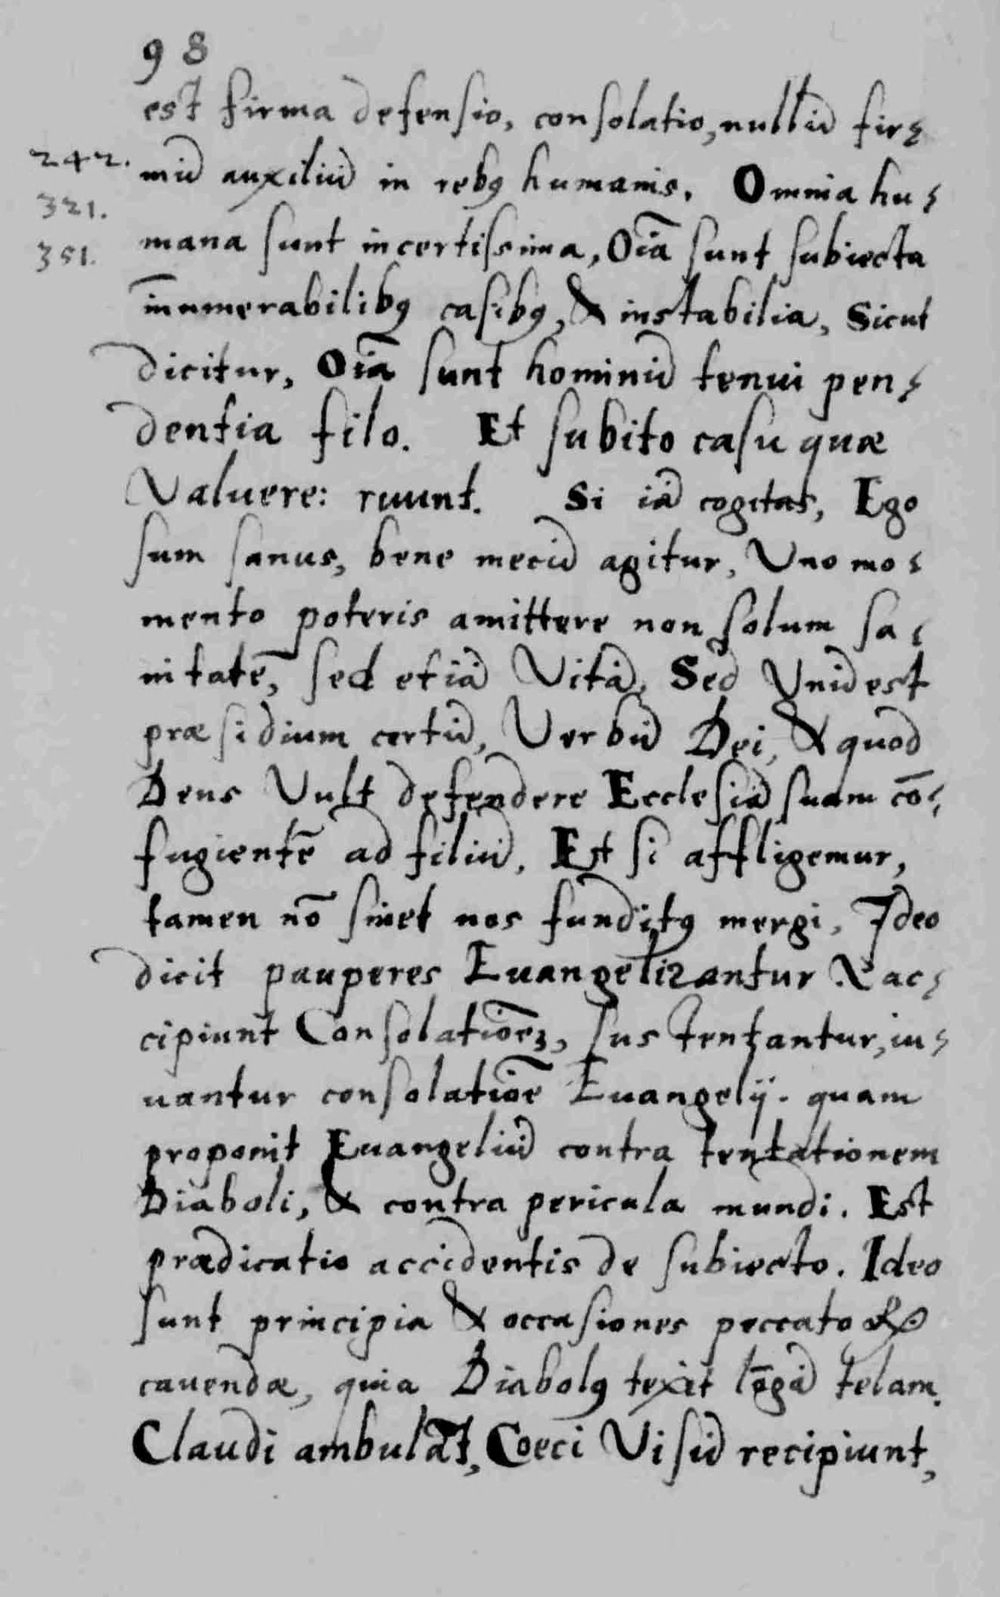 98
est firma defensio, consolatio, nullũ fir-
242. mũ auxiliũ in rebꝰ humanis. Omnia hu-
321.
351. mana sunt incertissima, Oĩa sunt subiecta
ĩnumerabilibꝰ casibꝰ, & instabilia, Sicut
dicitur, Oĩa sunt hominũ tenui pen-
dentia filo. Et subito casu quæ
Valuere: ruunt. Si iã cogitas, Ego
sum sanus, bene mecũ agitur, Uno mo-
mento poteris amittere non solum sa-
nitatẽ, sed etiã Vitã, Sed Unũ est
præsidium certũ, Verbũ Dei, & quod
Deus Vult defendere Ecclesiã suam cõ-
fugientẽ ad filiũ, Et si affligemur,
tamen nõ sinet nos funditꝰ mergi, Ideo
dicit pauperes Euangelizantur & ac-
cipiunt Consolatiõeʒ, sustentantur, iu-
uantur consolatiõe Euangelij. quam
proponit Euangeliũ contra tentationem
Diaboli, & contra pericula mundi. Est
prædicatio accidentis de subiecto. Ideo
sunt principia & occasiones peccatoꝝ
cauendæ, quia Diabolꝰ texit lõgã telam.
Claudi ambulãt, Coeci Visũ recipiunt,